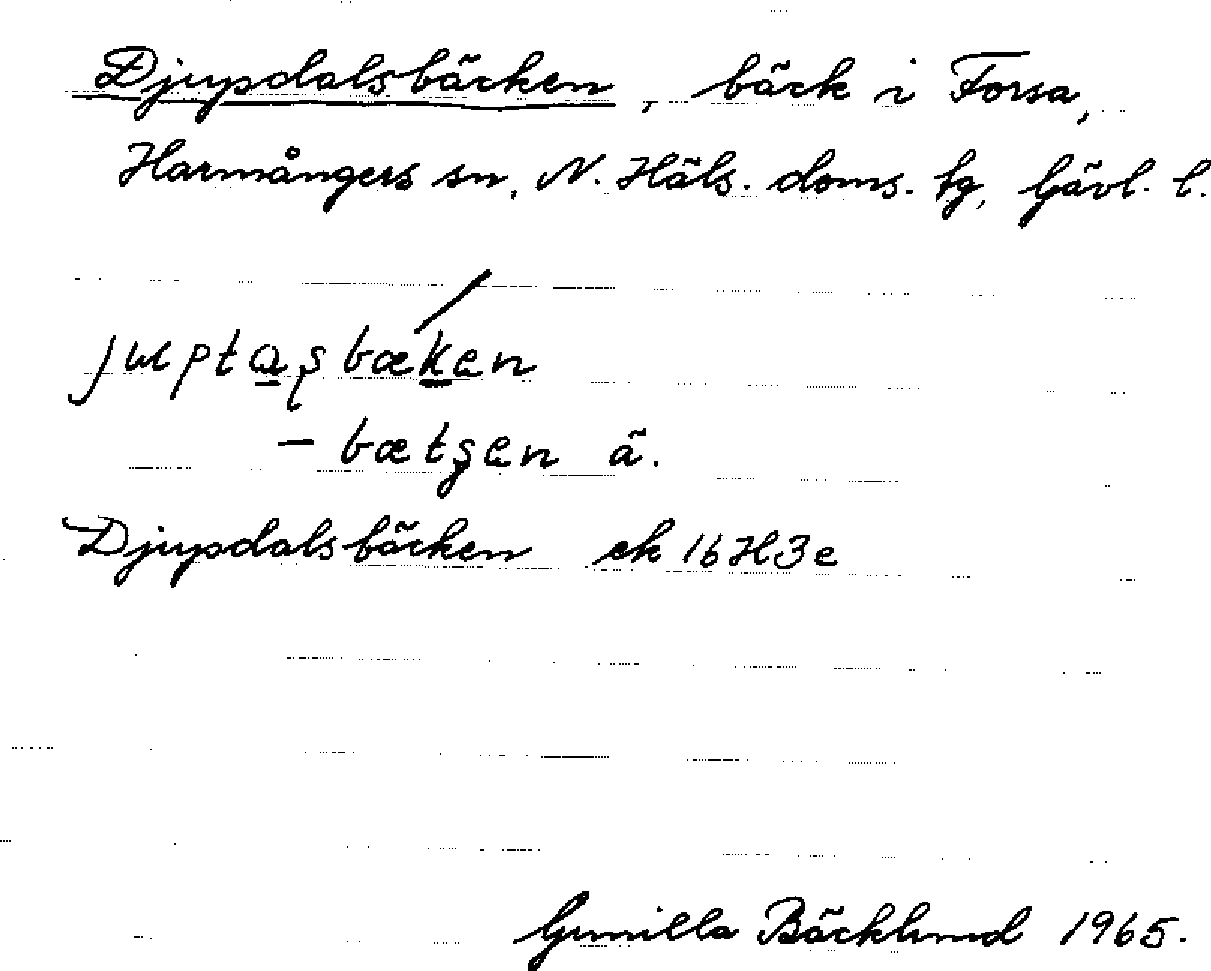 Djupsdalsbäcken, bäck i Forsa,
Harmångers sn, N. Häls. doms. tg, Gävl. l.
– bætʂen ä.
Djupsdalsbäcken ek 16H3e
Gunilla Bäcklund 1965.